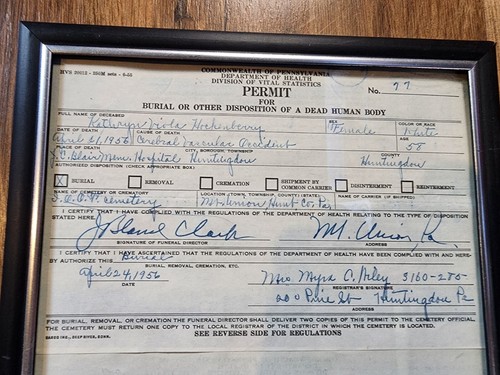 COMMONWEALTH OF PENNSYLVANIA
DEPARTMENT OF HEALTH
DIVISION OF VITAL STATISTICS
PERMIT
No. 77
FOR
BURIAL OR OTHER DISPOSITION OF A DEAD HUMAN BODY
FULL NAME OF DECEASED SEX COLOR OR RACE
Kathryn Viola Hockenberry Female White
DATE OF DEATH CAUSE OF DEATH AGE
April 21, 1956 Cerebral Vascular Accident 58
PLACE OF DEATH CITY, BOROUGH, TOWNSHIP COUNTY
J. C. Blair Mem. Hospital Huntingdon Huntingdon
AUTHORIZED DISPOSITION (CHECK APPROPRIATE BOX)
X BURIAL REMOVAL CREMATION SHIPMENT BY COMMON CARRIER DISINTERMENT REINTERMENT
NAME OF CEMETERY OR CREMATORY LOCATION (TOWN, TOWNSHIP, COUNTY) (STATE) NAME OF CARRIER (IF SHIPPED)
I.O.O.F. Cemetery Mt. Union Hunt Co. Pa.
I CERTIFY THAT I HAVE COMPLIED WITH THE REGULATIONS OF THE DEPARTMENT OF HEALTH RELATING TO THE TYPE OF DISPOSITION
STATED HERE.
Clark Mt. Union, Pa.
SIGNATURE OF FUNERAL DIRECTOR ADDRESS
I CERTIFY THAT I HAVE ASCERTAINED THAT THE REGULATIONS OF THE DEPARTMENT OF HEALTH HAVE BEEN COMPLIED WITH AND HERE-
BY AUTHORIZE THIS Burial
BURIAL, REMOVAL, CREMATION, ETC.
April 24, 1956 Mrs Myra C. 3160-285-
DATE REGISTRAR'S SIGNATURE
Pine St Huntingdon Pa
ADDRESS
FOR BURIAL, REMOVAL, OR CREMATION THE FUNERAL DIRECTOR SHALL DELIVER TWO COPIES OF THIS PERMIT TO THE CEMETERY OFFICIAL.
THE CEMETERY MUST RETURN ONE COPY TO THE LOCAL REGISTRAR OF THE DISTRICT IN WHICH THE CEMETERY IS LOCATED.
SEE REVERSE SIDE FOR REGULATIONS